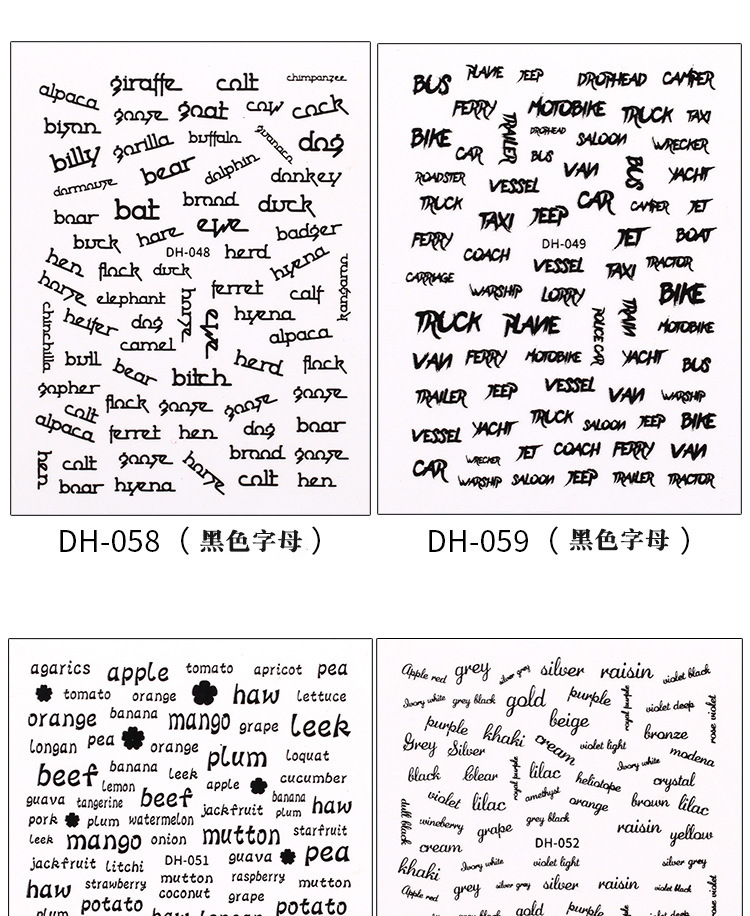 giraffe colt chimpanzee
alpaca goose goat cow cock
bison gorilla buffalo guanaco dog
billy bear dolphin donkey
dormouse bat brood duck
boar buck hare ewe badger
DH-048 herd hyena
hen flock duck
horse elephant horse ferret calf kangaroo
chinchilla heifer dog ewe hyena
camel alpaca
bull bear bitch herd flock
gopher colt flock goose goose goose
alpaca ferret hen dog boar
hen colt goose horse brood goose
boar hyena colt hen
BUS PLANE JEEP DROPHEAD CAMPER
FERRY TRAILER MOTOBIKE TRUCK TAXI
BIKE DROPHEAD SALOON WRECKER
CAR BUS VAN BUS YACHT
ROADSTER VESSEL CAR
TRUCK TAXI JEEP CAMPER JET
FERRY DH-049 JET BOAT
COACH VESSEL TAXI TRACTOR
CARRIAGE WARSHIP LORRY BIKE
TRUCK PLANE POLICE CAR TRAIN MOTOBIKE
VAN FERRY MOTOBIKE YACHT BUS
TRAILER JEEP VESSEL VAN WARSHIP
VESSEL YACHT TRUCK SALOON JEEP BIKE
WRECKER JET COACH FERRY VAN
CAR WARSHIP SALOON JEEP TRAILER TRACTOR
DH-058（黑色字母）
DH-059（黑色字母）
agarics apple tomato apricot pea
tomato orange haw lettuce
orange banana mango grape leek
longan pea orange plum loquat
beef banana leek cucumber
lemon apple
guava tangerine beef jackfruit banana plum haw
pork plum watermelon
leek mango onion mutton starfruit
jackfruit litchi DH-051 guava pea
haw strawberry mutton raspberry mutton
plum potato coconut grape potato
Apple red grey silver grey silver raisin violet black
Ivory white grey black gold purple royal purple violet deep rose violet
purple khaki beige bronze
Grey Silver cream violet light modena
black Clear royal purple lilac heliotope Ivory white crystal
violet lilac amethyst orange brown lilac
dull black wineberry grape grey black raisin yellow
cream DH-052
khaki Ivory white violet light silver grey
Apple red grey silver grey silver raisin violet black
gold purple